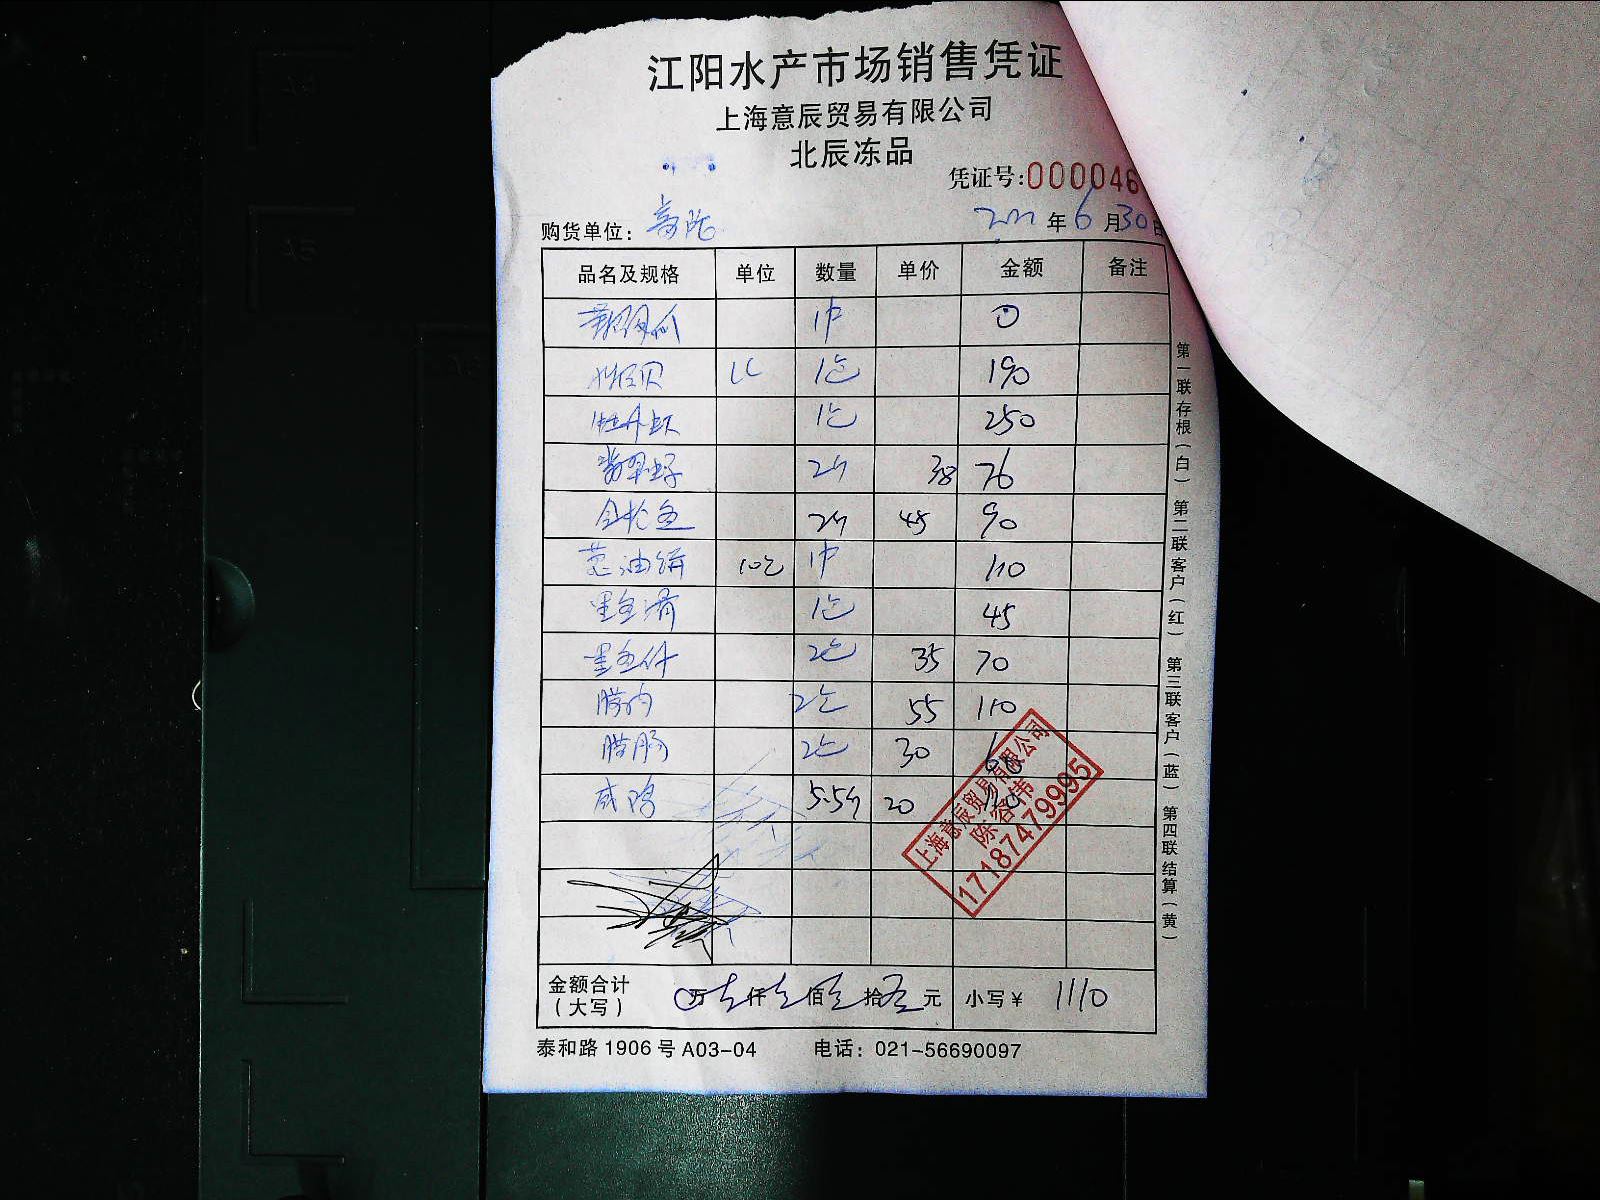 江阳水产市场销售凭证
上海意辰贸易有限公司
北辰冻品
凭证号:000046
购货单位: 年6月30日
品名及规格 单位 数量 单价 金额 备注
1件 0
1包 190
1包 250
翡翠蛏子 2斤 38 76
金枪鱼 2斤 45 90
葱油饼 10包 1件 110
墨鱼滑 1包 45
墨鱼仔 2包 35 70
腊肉 2包 55 110
腊肠 2包 30 60
咸鸡 5.5斤 20 110
上海意辰贸易有限公司
陈容伟
17187479995
金额合计(大写) 0万 仟 佰 拾 元 小写¥ 1110
泰和路1906号A03-04 电话: 021-56690097
第一联存根(白) 第二联客户(红) 第三联客户(蓝) 第四联结算(黄)